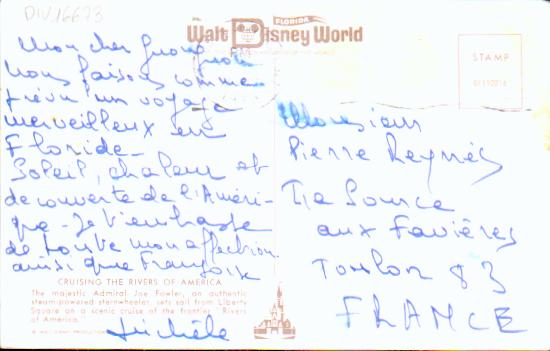 DIV16673
FLORIDA
Walt Disney World
STAMP
Mon cher
Nous faisons comme
prévu un voyage
merveilleux en
Floride -
Soleil, chaleur et
decouverte de l'Améri-
que - Je t'embrasse
de toute mon affection
ainsi que Françoise
Michèle
Monsieur
Pierre Reynès
La Source
aux Favières
Toulon 83
FRANCE
CRUISING THE RIVERS OF AMERICA
The majestic Admiral Joe Fowler, an authentic
steam-powered sternwheeler, sets sail from Liberty
Square on a scenic cruise of the frontier "Rivers
of America."